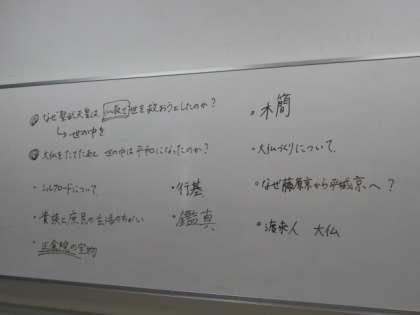 なぜ聖武天皇は 仏教で世を救おうとしたのか?
↳ 世の中を
大仏をたてたあと 世の中は平和になったのか?
・シルクロードについて
・貴族と庶民の生活のちがい
・正倉院の宝物
・行基
・鑑真
・木簡
・大仏づくりについて
・なぜ藤原京から平城京へ?
・渡来人 大仏